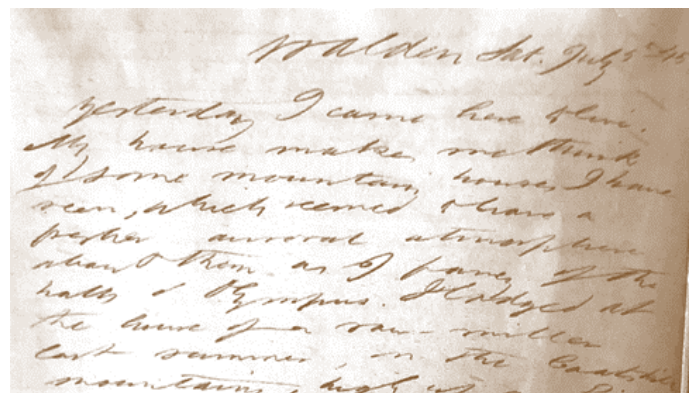 Walden Sat. July 5th 45
Yesterday I came here to live.
My house makes me think
of some mountain houses I have
seen, which seemed to have a
fresher auroral atmosphere
about them as I fancy of the
halls of Olympus. I lodged at
the house of a saw-miller
last summer, in the Caatskill
mountains, high up